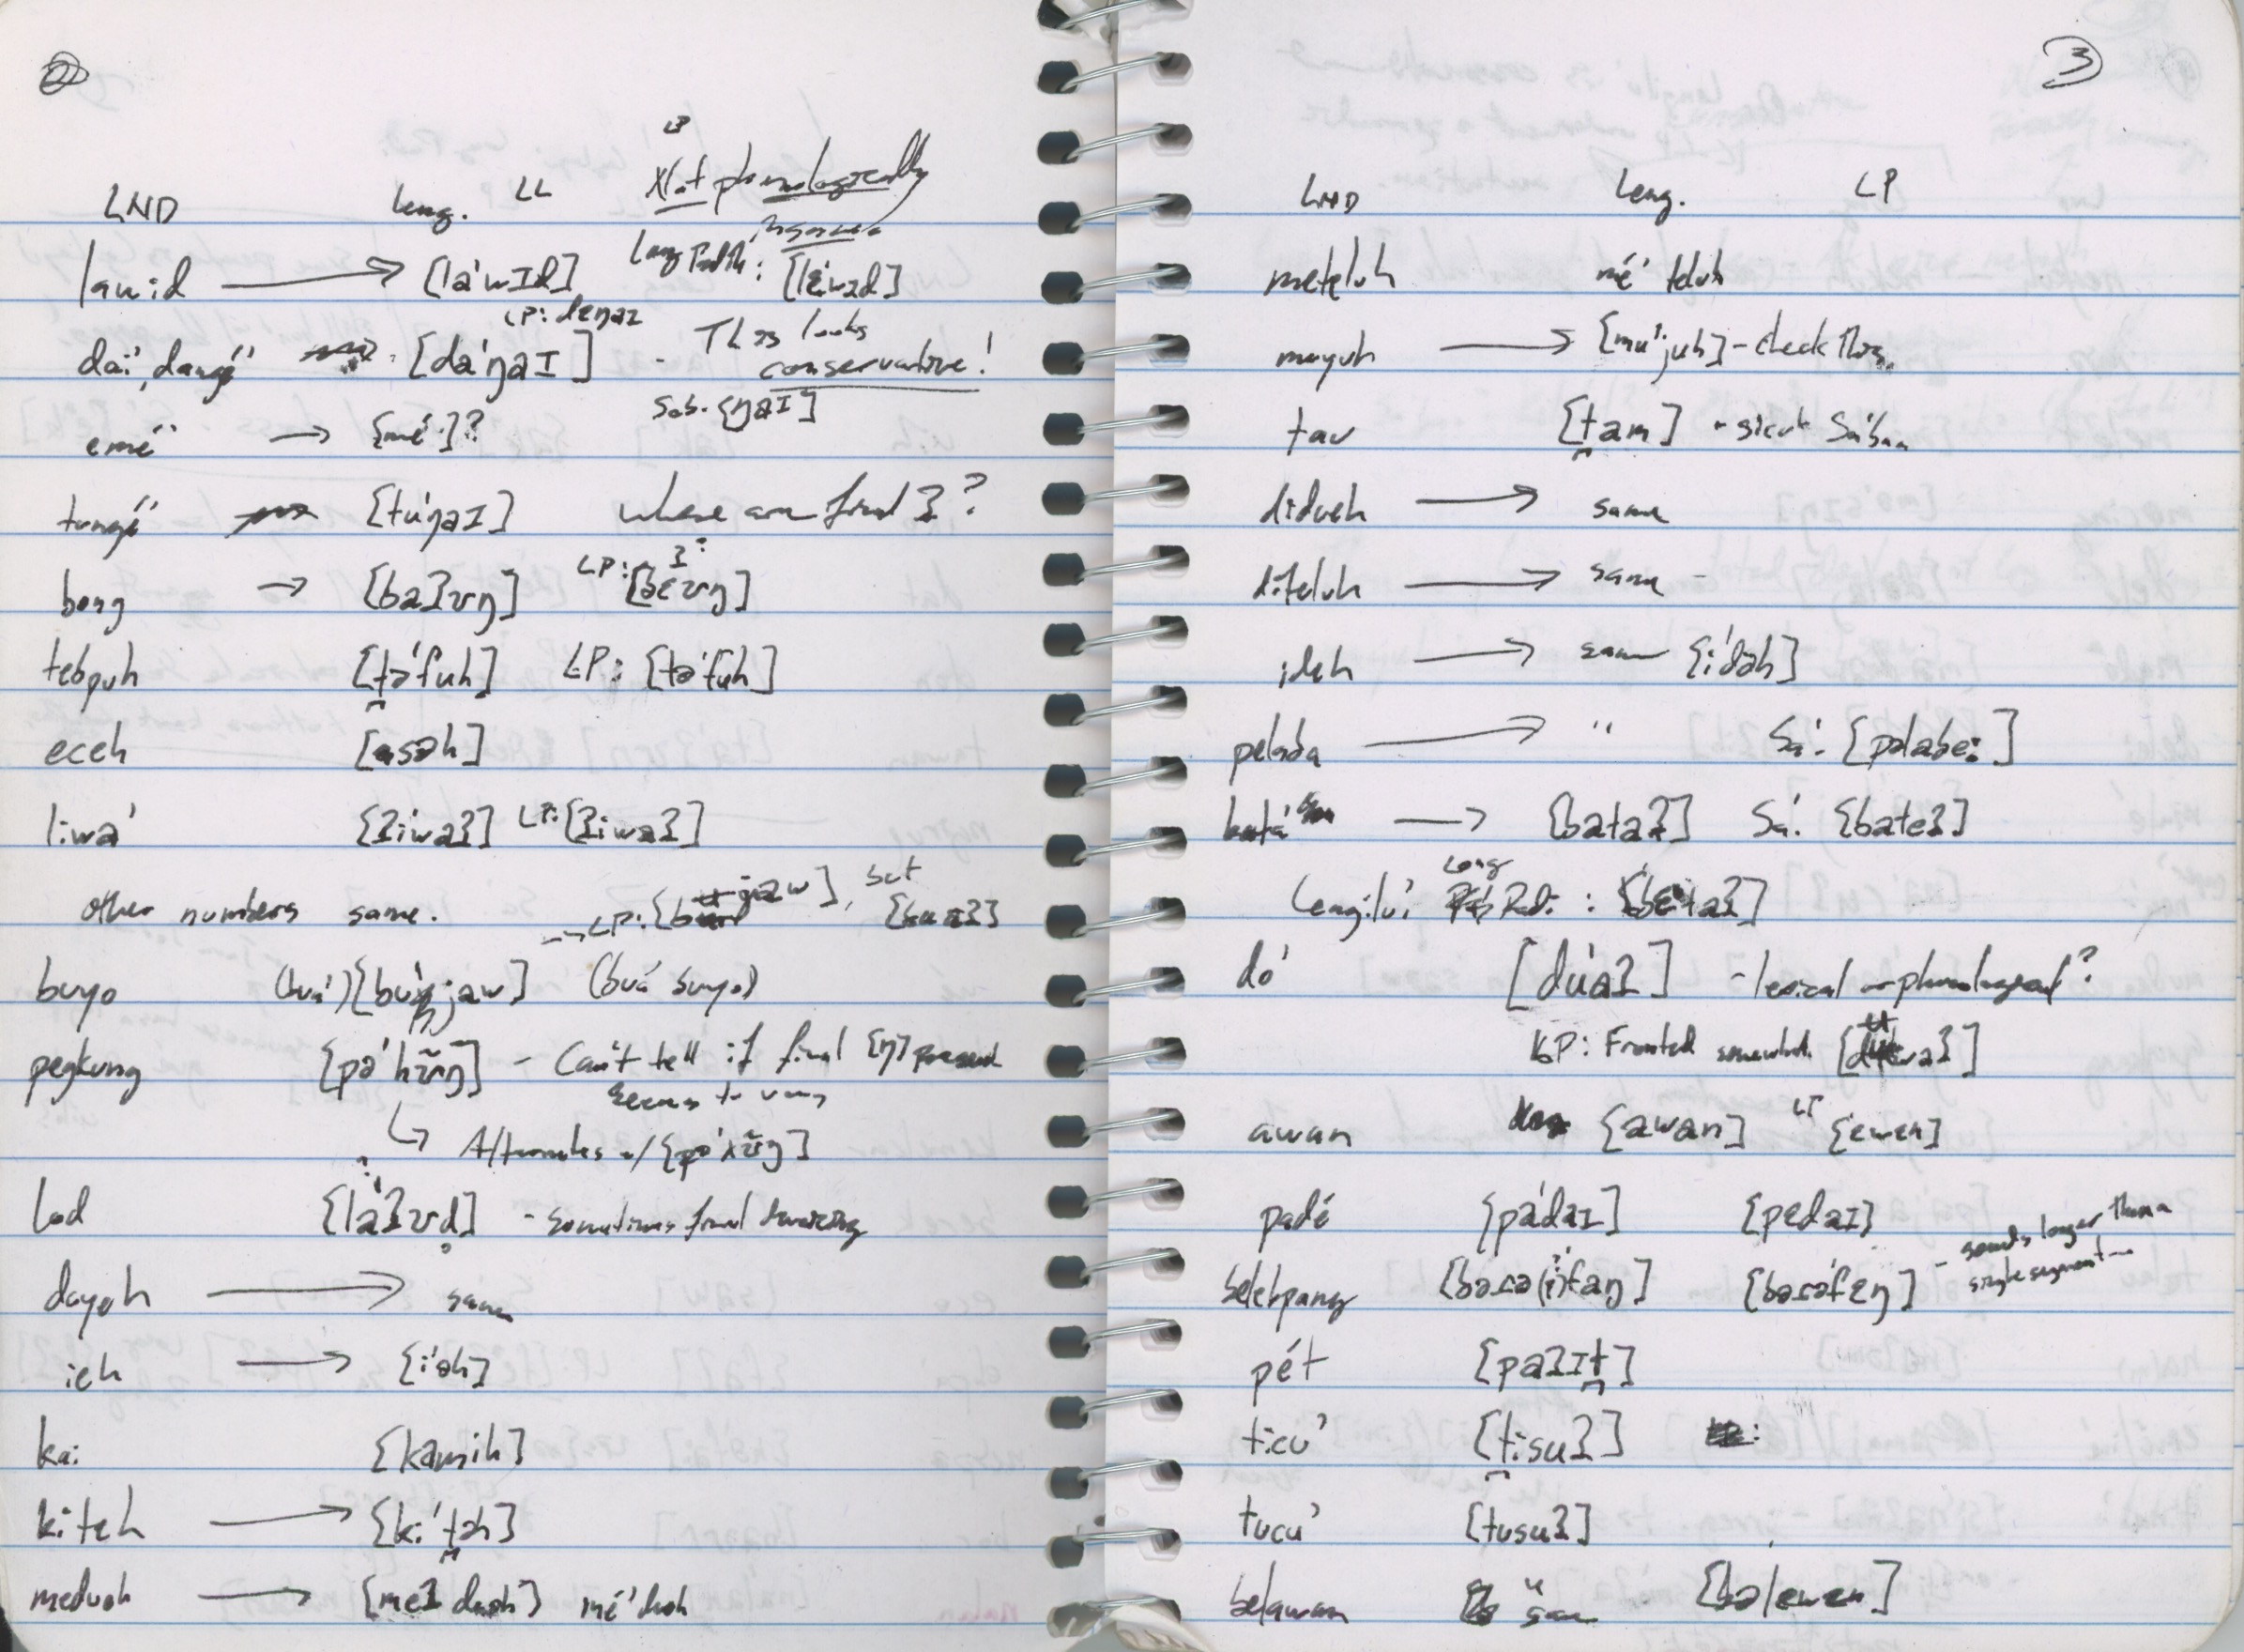 2
LP
LND Leng. LL Not phonologically
lawid → [láwɪd] Long Padi: [lɛ́wɪd]
LP: dɛŋaɪ
dai', dangé [dáŋaɪ] - This looks
conservative!
Sab. [ŋaɪ]
emé → [mé]?
tungé [túŋaɪ] where are final ʔ?
bong → [baʔʊŋ] LP: [bɛʔʊŋ]
tebpuh [t̪əfuh] LP: [təfuh]
eceh [asəh]
liwa' [ʔiwaʔ] LP: [ʔiwaʔ]
other numbers same. LP: , but
buyo (buá) [bújaw] (buá buyo)
pegkung [pəhʊ̃ŋ] - Can't tell if final [ŋ] present
Seems to vary
↳ Alternates w/
lod [láʔʊd̥] - sometimes final devoicing
dayeh → same
ieh → [íəh]
kai [kamih]
kiteh → [kít̪əh]
medueh → mé' dueh
3
LND Leng. LP
meteluh mé' teluh
muyuh → [mújuh] - check this.
tau [t̪am] - sicut Sa'ban
didueh → same
diteluh → same
ideh → same [ídəh]
pelaba → " Sa': [pəlabeː]
batá → [bataʔ] Sa'. [bateʔ]
Lengilu' Long Padi: [bɛtaʔ]
do' [dúaʔ] - lexical or phonological?
LP: Fronted somewhat
awan [awan] LP [ɛwɛn]
padé [pádaɪ] [pɛdaɪ]
belebpang [bəɾə(ʔ)faŋ] [bəɾəfɛŋ] - sounds longer than a
single segment
pét [paʔɪt̪]
ticu' [t̪isuʔ]
tucu' [tusuʔ]
belawan same [bəlɛwɛn]